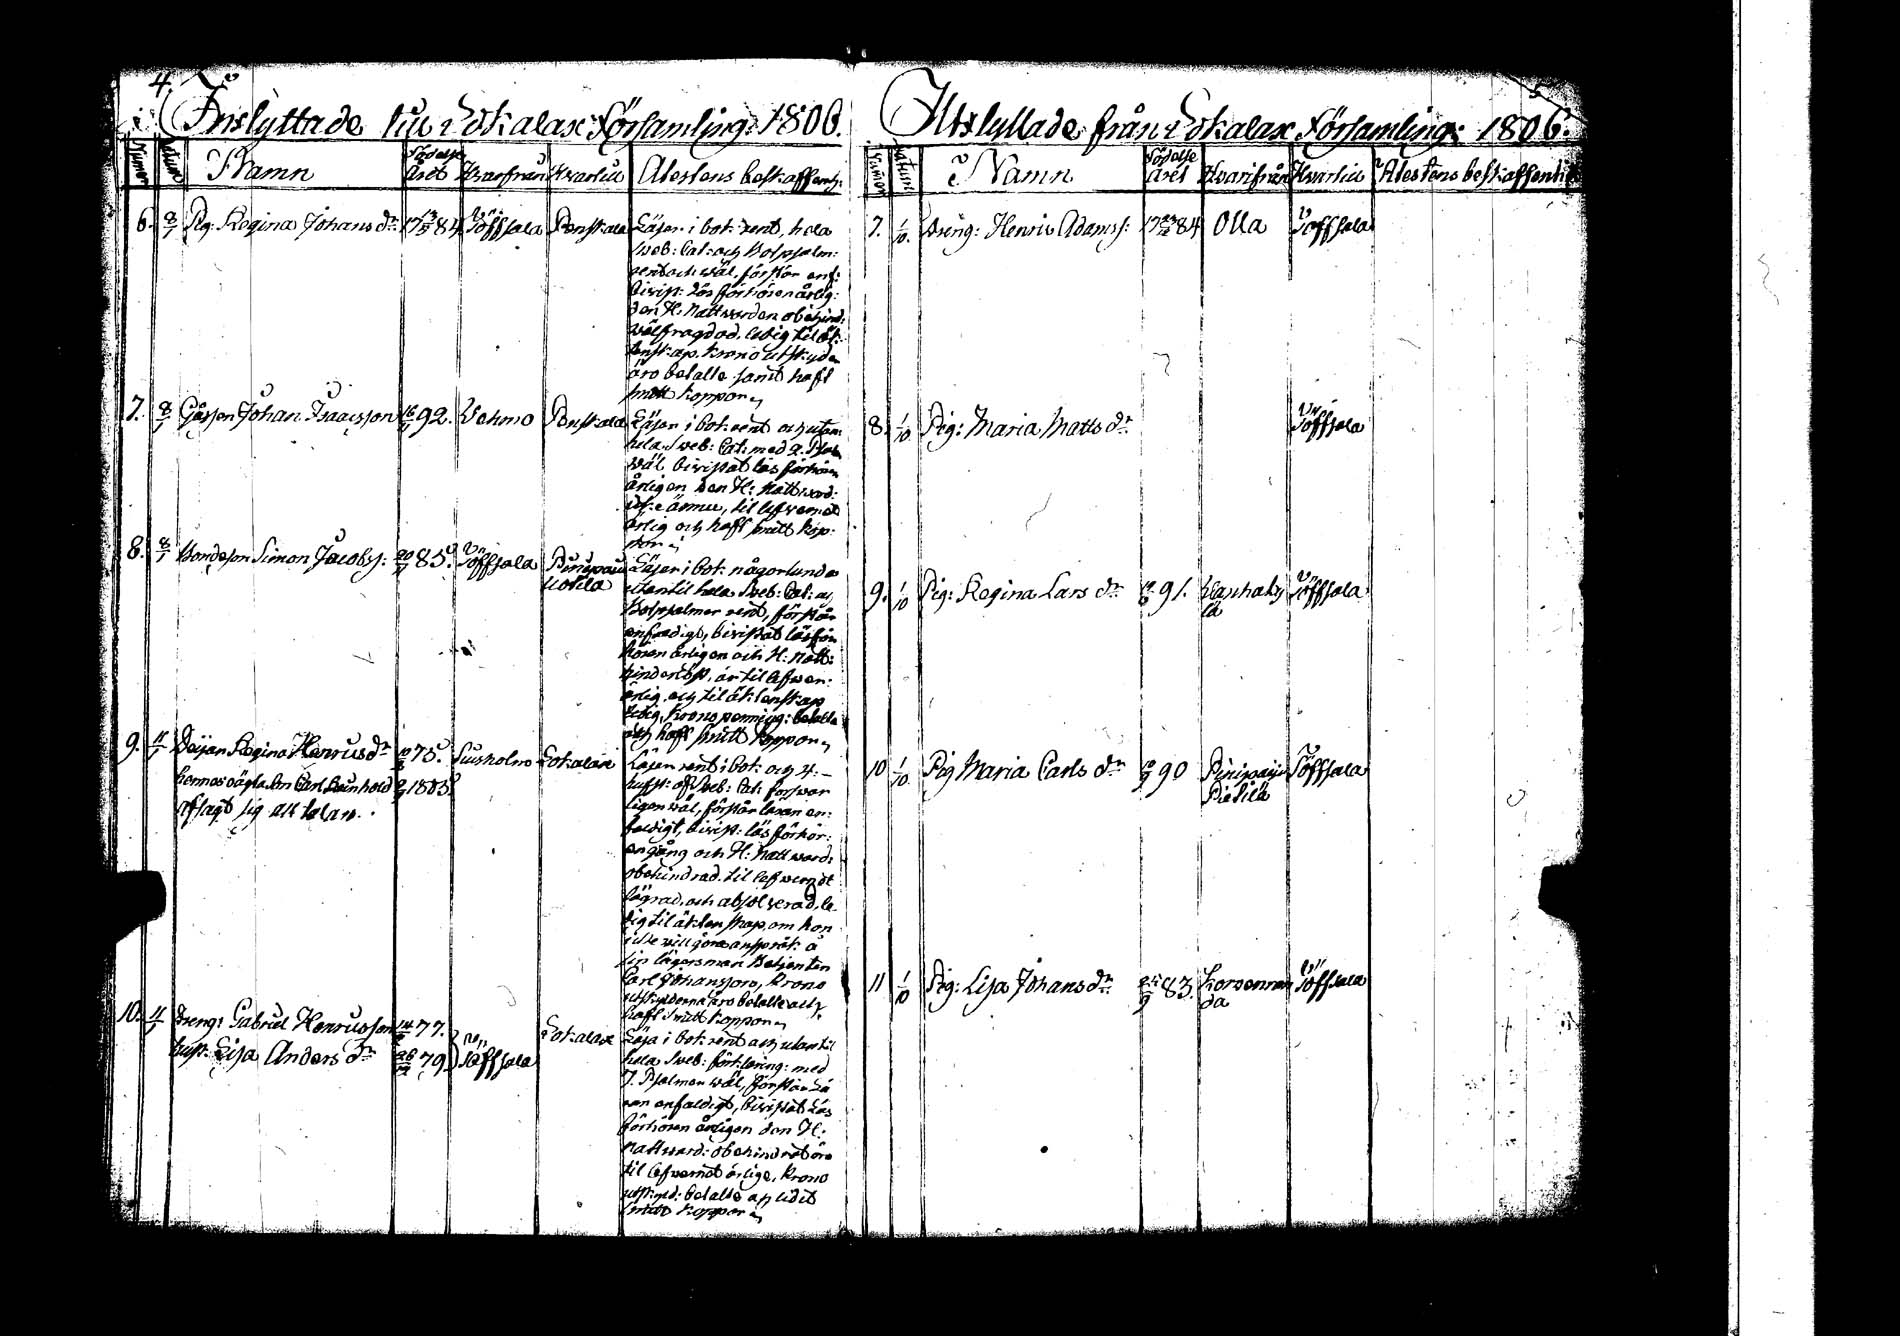 4.
Inflyttade til Lokalax Församling: 1806.
Numer Datum Namn Födelse Året Hvarifrån Hvartil Atestens beskaffenh:
6. 8/1 Pig: Regina Johans dr 17 13/5 84 Töffsala Penskala Läser i bok rent, hela
Sveb: Cat: och Botpsalm:
rent och wäl, förstår enf:
bivist: Läsförhören årlig:
den H: Nattvarden obehind:
wälfragdad, ledig til äk:
tenskap. Krono utskylder
äro betalte samt haft
smitt koppor
7. 8/1 Gåssen Johan Isaacsson 16/1 92. Vehmo Penskala Läser i bok rent och utan
hela Sveb: Cat: med 2. Psalm
wäl bivistat läsförhören
årligen den H: Nattvard:
icke ännu, til lefvernet
ärlig och haft smitt kop:
por
8. 8/1 Bondeson Simon Jacobs: 20/11 85. Töffsala Pinipaiu Uotila Läser i bok någorlunda
utantil hela Sveb: Cat: och
Botpsalmer rent, förstår
enfaldigt, bivistat läsför
hören årligen och H: Natt:
hinderlöst, är til lefver:
ärlig och til äktenskap
ledig, Kronopenning: betalte
och haft smitt koppor
9. 11/1 Deijan Regina Henrics dr 10/2 75. Lusholm Lokalax Läser rent i bok och 4.
hennes oägta son Carl Reinhold 2/9 1803.
afsagt sig all talan.
hufst: af Sveb: Cat: forsvar
ligen wäl, förstår läran en:
faldigt, bivist: läsförhör:
en gång och H: Nattvard:
obehindrad. til lefvernet
lägrad, och absolverad, le
dig til äktenskap, om hon
icke will göra anspråk å
sin lägersman Betjenten
Carl Johansson, Krono
utskylderna äro betalte och
haft smitt koppor
10. 11/1 Dreng: Gabriel Henricsson 14/2 77. Töffsala Lokalax
hust: Lisa Anders dr 26/12 79
Läsa i bok rent och utantil
hela Sveb: förklaring: med
7. Psalmer wäl, förstår Lä
ran enfaldigt, bivistat Läs
förhören årligen den H:
Nattvard: obehindrat äro
til lefvernet ärlige, Krono
utskyld: betalte och lidit
smitt koppor
5
Utflyttade från Lokalax Församling: 1806.
Numer Datum Namn Födelse Året Hvarifrån Hvartil Atestens beskaffenhet
7. 1/10. Dreng: Henric Adamss: 17 23/12 84 Olla Töffsala
8. 1/10 Pig: Maria Matts dr Töffsala
9. 1/10 Pig: Regina Lars dr 91. Vanhaky lä Töffsala
10 1/10 Pig Maria Carls dr 90 Pinipaiju Pietilä Töffsala
11 1/10 Pig: Lisa Johans dr 24/9 83. Korvenran da Töffsala